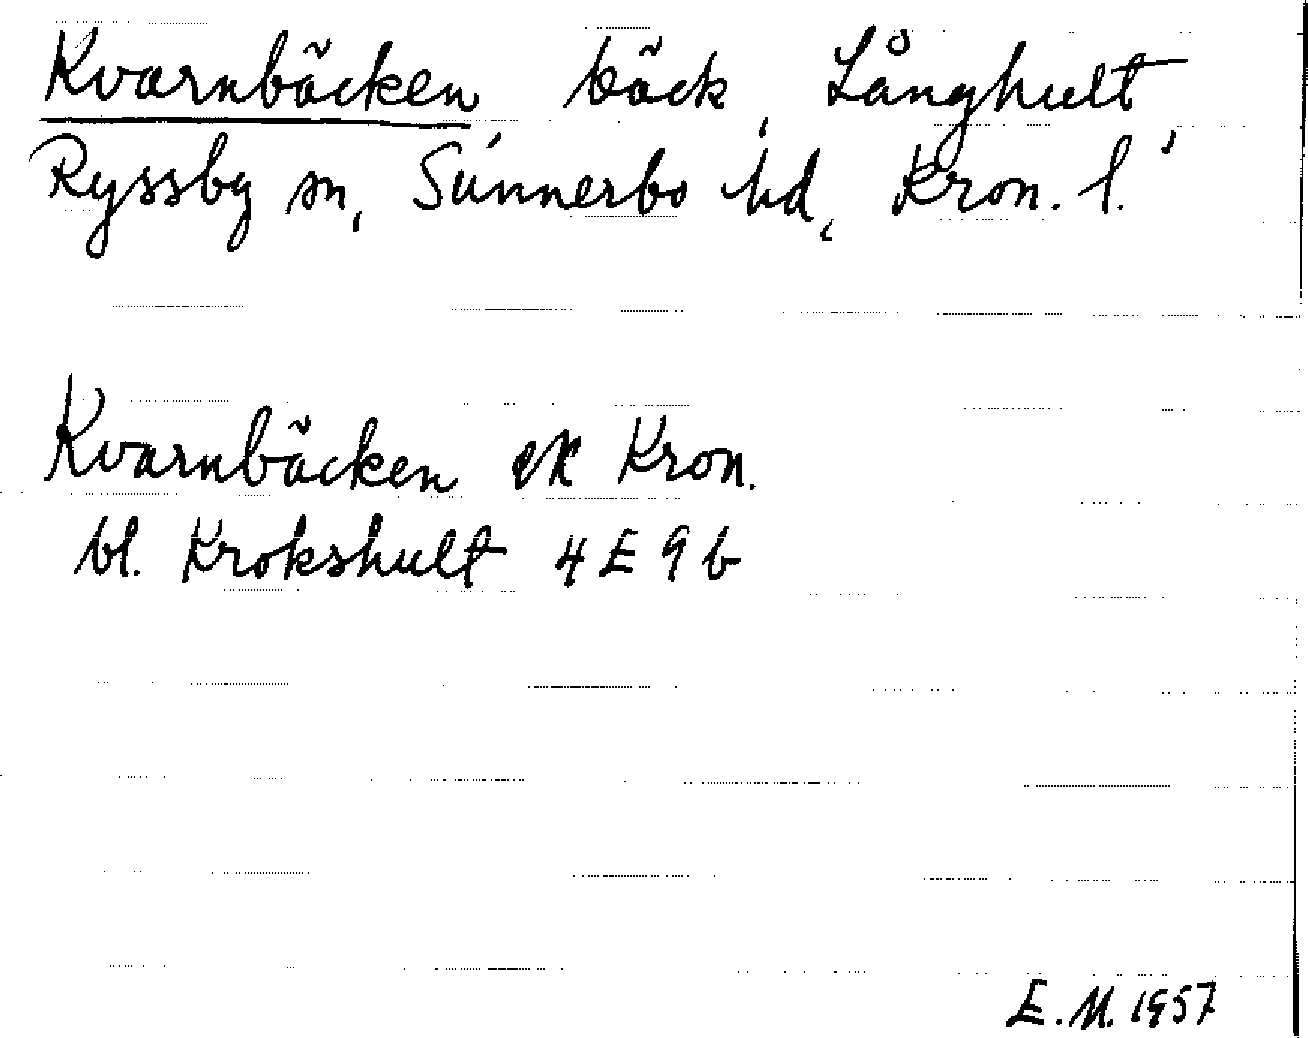 Kvarnbäcken bäck, Långhult,
Ryssby sn, Sunnerbo hd, Kron. l.
Kvarnbäcken ek Kron.
bl. Krokshult 4E9b
E.M. 1957